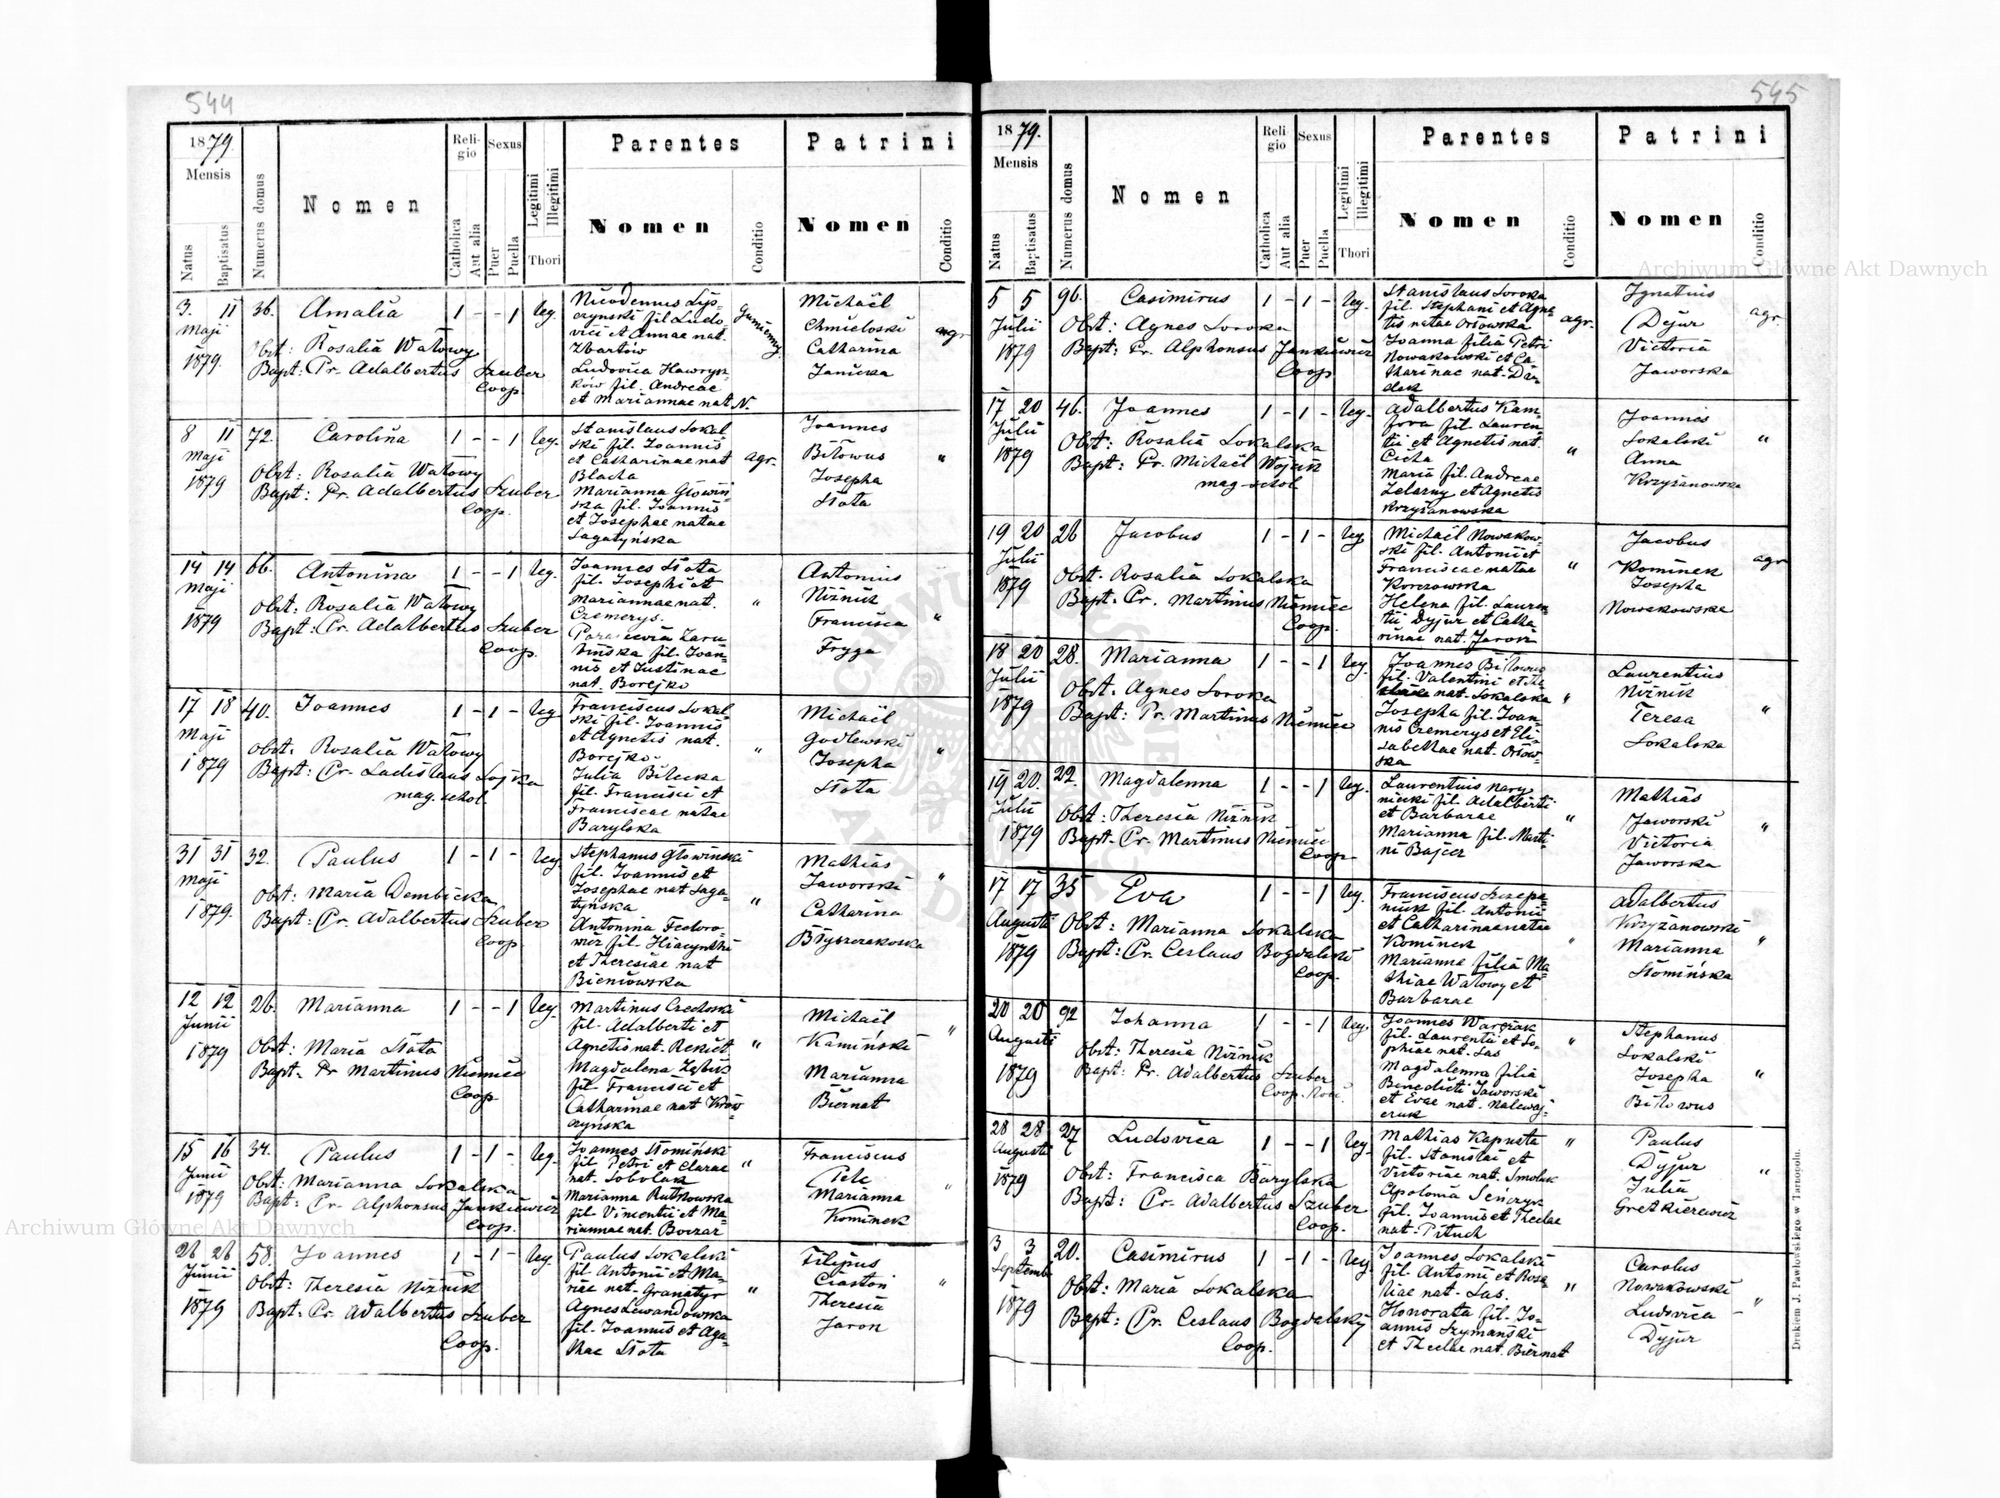 544
1879
Mensis
Natus
Baptisatus
Numerus domus
Nomen
Religio
Catholica
Aut alia
Sexus
Puer
Puella
Legitimi
Illegitimi
Thori
Parentes
Nomen
Conditio
Patrini
Nomen
Conditio
3. 11 36. Amalia 1 - - 1 leg.
Maji
1879.
Obst: Rosalia Watowy
Bapt: Pr. Adalbertus Szuber
Coop.
Nicodemus Lys-
czynski fil Ludo-
vici et Annae nat.
Zbartow
Ludovica Hawrys-
ków fil. Andreae
et Mariannae nat N.
Michaël
Chmieloski agr
Catharina
Janicka
8 11 72. Carolina 1 - - 1 leg.
Maji
1879
Obst: Rosalia Watowy
Bapt: Pr. Adalbertus Szuber
Coop.
Stanislaus Sokal
ski fil. Joannis
et Catharinae nat agr.
Blacha
Marianna Głowiń
ska fil. Joannis
et Josephae natae
Sagatyńska
Joannes
Bitowus "
Josepha
Słota
14 14 66. Antonina 1 - - 1 leg.
Maji
1879
Obst: Rosalia Watowy
Bapt: Pr. Adalbertus Szuber
Coop.
Joannes Słota
fil. Josephi et
Mariannae nat. "
Czemerys.
Zaru
bińska fil. Joan-
nis et Justinae
nat. Borejko
Antonius
Niżnik
Francisca "
Fryga
17 18 40. Joannes 1 - 1 - leg
Maji
1879
Obst: Rosalia Watowy
Bapt: Pr. Ladislaus Sojka
mag. schol.
Franciscus Sokal
ski fil. Joannis
et Agnetis nat.
Borejko "
Julia Bilecka
fil. Francisci et
Franciscae natae
Barylska
Michaël
Godlewski "
Josepha
Słota
31 31 32. Paulus 1 - 1 - leg
Maji
1879.
Obst: Maria Dembicka
Bapt: Pr. Adalbertus Szuber
Coop
Stephanus Głowinski
fil. Joannis et
Josephae nat Saga-
tyńska "
Antonina Fedoro-
wicz fil. Hiacynthi
et Theresiae nat
Bieniowska
Mathias
Jaworski "
Catharina
12 12 26. Marianna 1 - - 1 leg.
Junii
1879
Obst: Maria Słota
Bapt. Pr Martinus Niemiec
Coop
Martinus Czechoski
fil. Adalberti et
Agnetis nat. Rekiet "
Magdalena
fil. Francisci et
Catharinae nat Kraw-
czyńska
Michaël
Kamiński "
Marianna
Biernat
15 16 34. Paulus 1 - 1 - leg.
Junii
1879
Obst: Marianna Sokalska
Bapt: Pr. Alphonsus Jankiewicz
Coop.
Joannes Słomiński
fil. Petri et Clarae "
nat. Sobolak
Marianna Rutkowska
fil. Vincentii et Ma-
riannae nat.
Franciscus
Marianna "
Kominek
26 26 58. Joannes 1 - 1 - leg
Junii
1879
Obst: Theresia Niżnik
Bapt: Pr. Adalbertus Szuber
Coop.
Paulus Sokalski
fil. Antonii et Ma-
riae nat. Granatyr "
Agnes Lewandowska
fil. Joannis et Aga-
thae Słota
Filipus
Ciastoń "
Theresia
Jaroń
545
1879.
Mensis
Natus
Baptisatus
Numerus domus
Nomen
Religio
Catholica
Aut alia
Sexus
Puer
Puella
Legitimi
Illegitimi
Thori
Parentes
Nomen
Conditio
Patrini
Nomen
Conditio
5 5 96. Casimirus 1 - 1 - leg.
Julii
1879
Obst: Agnes Soroka
Bapt: Pr. Alphonsus Jankiewicz
Coop
Stanislaus Soroka
fil. Stephani et Agne
tis natae Orłowska agr.
Joanna filia Petri
Nowakowski et Ca
tharinae nat. Du-
dek
Ignatius
Dyjur agr.
Victoria
Jaworska
17 20 46. Joannes 1 - 1 - leg.
Julii
1879
Obst: Rosalia Sokalska
Bapt: Pr. Michaël Wojcik
mag-schol
Adalbertus Kam-
fora fil. Lauren-
tii et Agnetis nat.
Cicha "
Maria fil. Andreae
Zelazny et Agnetis
Krzyżanowska
Joannes
Sokalski "
Anna
Krzyżanowska
19 20 26 Jacobus 1 - 1 - leg
Julii
1879
Obst. Rosalia Sokalska
Bapt. Pr. Martinus Niemiec
Coop.
Michaël Nowakow-
ski fil. Antonii et
Franciscae natae "
Helena fil. Lauren-
tii Dyjur et Catha
rinae nat. Jaroń
Jacobus
Kominek agr
Josepha
Nowakowska
18 20 28. Marianna 1 - - 1 leg
Julii
1879
Obst. Agnes Soroka
Bapt: Pr. Martinus Niemiec
Joannes Bitowus
fil. Valentini et
nat. Sokalska "
Josepha fil. Joan-
nis Czemerys et Eli-
sabethae nat. Orłow-
ska
Laurentius
Niżnik
Teresa "
Sokalska
19 20. 22. Magdalenna 1 - - 1 leg.
Julii
1879
Obst: Theresia Niżnik
Bapt. Pr. Martinus Niemiec
Coop
Laurentius Nary
niecki fil. Adalberti
et Barbarae "
Marianna fil. Marti-
ni Bajcer
Mathias
Jaworski "
Victoria
Jaworska
17 17 35 Eva 1 - - 1 leg.
Augusti
1879
Obst: Marianna Sokalska
Bapt: Pr. Ceslaus Bogdalski
Coop.
Franciscus Szczepa-
niuk fil. Antonii
et Catharinae natae
Kominek "
Marianna filia Ma-
thiae Watowy et
Barbarae
Adalbertus
Krzyżanowski
Marianna "
Słomińska
20 20 92 Johanna 1 - - 1 leg.
Augusti
1879
Obst: Theresia Niżnik
Bapt: Pr. Adalbertus Szuber
Coop.
Joannes Warczak
fil. Laurentii et So- "
phiae nat. Sas
Magdalenna filia
Benedicti Jaworski
et Evae nat. Nalewaj-
czuk
Stephanus
Sokalski
Josepha "
Bitowus
28 28 27 Ludovica 1 - - 1 leg
Augusti
1879
Obst: Francisca Barylska
Bapt: Pr. Adalbertus Szuber
Coop.
Mathias Kapusta "
fil. Stanislai et
Victoriae nat. Smoluk
Apolonia Seńczyk
fil. Joannis et Theclae
nat. Pituch
Paulus
Dyjur "
Julia
Gretkierewicz
3 3 20. Casimirus 1 - 1 - leg
Septemb
1879
Obst: Maria Sokalska
Bapt: Pr. Ceslaus Bogdalski
Coop.
Joannes Sokalski
fil. Antonii et Rosa- "
liae nat. Sas.
Honorata fil. Jo-
annis Szymański
et Theclae nat. Biernat
Carolus
Nowakowski "
Ludovica
Dyjur
Drukiem J. Pawłowskiego w Tarnopolu.
Archiwum Główne Akt Dawnych
Archiwum Główne Akt Dawnych